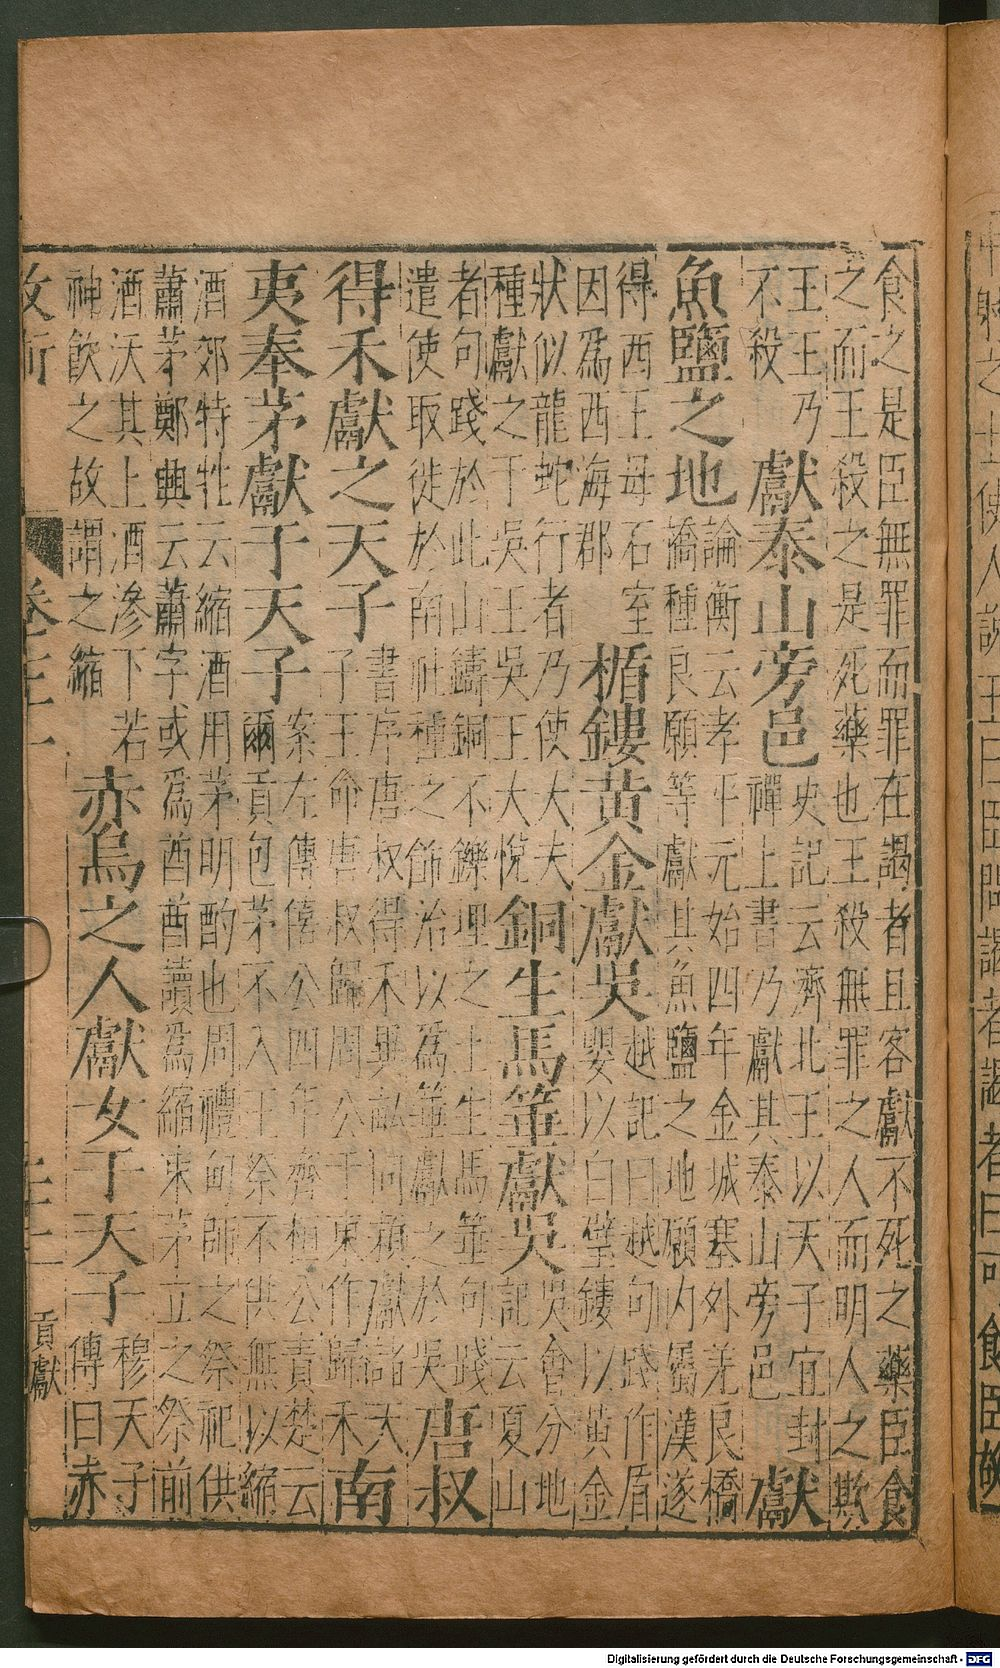 食之是臣無罪而罪在謁者且客獻不死之藥臣食
之而王殺之是死藥也王殺無罪之人而明人之欺
王王乃
不殺
獻泰山旁邑
史記云濟北王以天子宜封
禪上書乃獻其泰山旁邑
獻
魚鹽之地
論衡云孝平元始四年金城塞外羌良橋
橋種良願等獻其魚鹽之地願内屬漢遂
得西王母石室
因爲西海郡
楯鏤黄金獻吳
越記曰越句踐作盾
嬰以白璧鏤以黃金
狀似龍蛇行者乃使大夫
種獻之于吳王吳王大悅
銅生馬箠獻吳
吳會分地
記云夏山
者句踐於此山鑄銅不鑠埋之土生馬箠句踐
遣使取徙於南社種之飾治以爲箠獻之於吳
唐叔
得禾獻之天子
書序唐叔得禾異畝同穎獻諸天
子王命唐叔歸周公于東作歸禾
南
夷奉茅獻于天子
案左傳僖公四年齊桓公責楚云
爾貢包茅不入王祭不供無以縮
酒郊特牲云縮酒用茅明酌也周禮甸師之祭祀供
蕭茅鄭興云蕭字或爲茜茜讀爲縮束茅立之祭前
酒沃其上酒滲下若
神飲之故謂之縮
赤烏之人獻女于天子
穆天子
傳曰赤
卷二十
貢獻
Digitalisierung gefördert durch die Deutsche Forschungsgemeinschaft - DFG